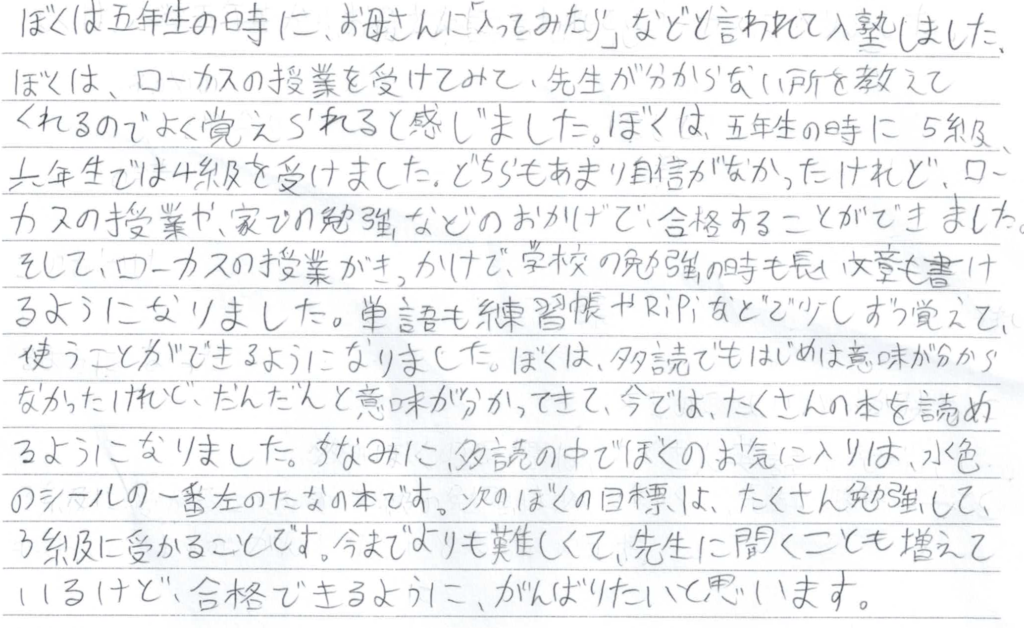 ぼくは五年生の時に、お母さんに「入ってみたら」などと言われて入塾しました。
ぼくは、ローカスの授業を受けてみて、先生が分からない所を教えて
くれるのでよく覚えられると感じました。ぼくは、五年生の時に5級、
六年生では4級を受けました。どちらもあまり自信がなかったけれど、ロー
カスの授業や、家での勉強などのおかげで、合格することができました。
そして、ローカスの授業がきっかけで、学校の勉強の時も長い文章も書け
るようになりました。単語も練習帳やRiPiなどで少しずつ覚えて、
使うことができるようになりました。ぼくは、多読でもはじめは意味が分から
なかったけれど、だんだんと意味が分かってきて、今では、たくさんの本を読め
るようになりました。ちなみに、多読の中でぼくのお気に入りは、水色
のシールの一番左のたなの本です。次のぼくの目標は、たくさん勉強して、
3級に受かることです。今までよりも難しくて、先生に聞くことも増えて
いるけど、合格できるように、がんばりたいと思います。